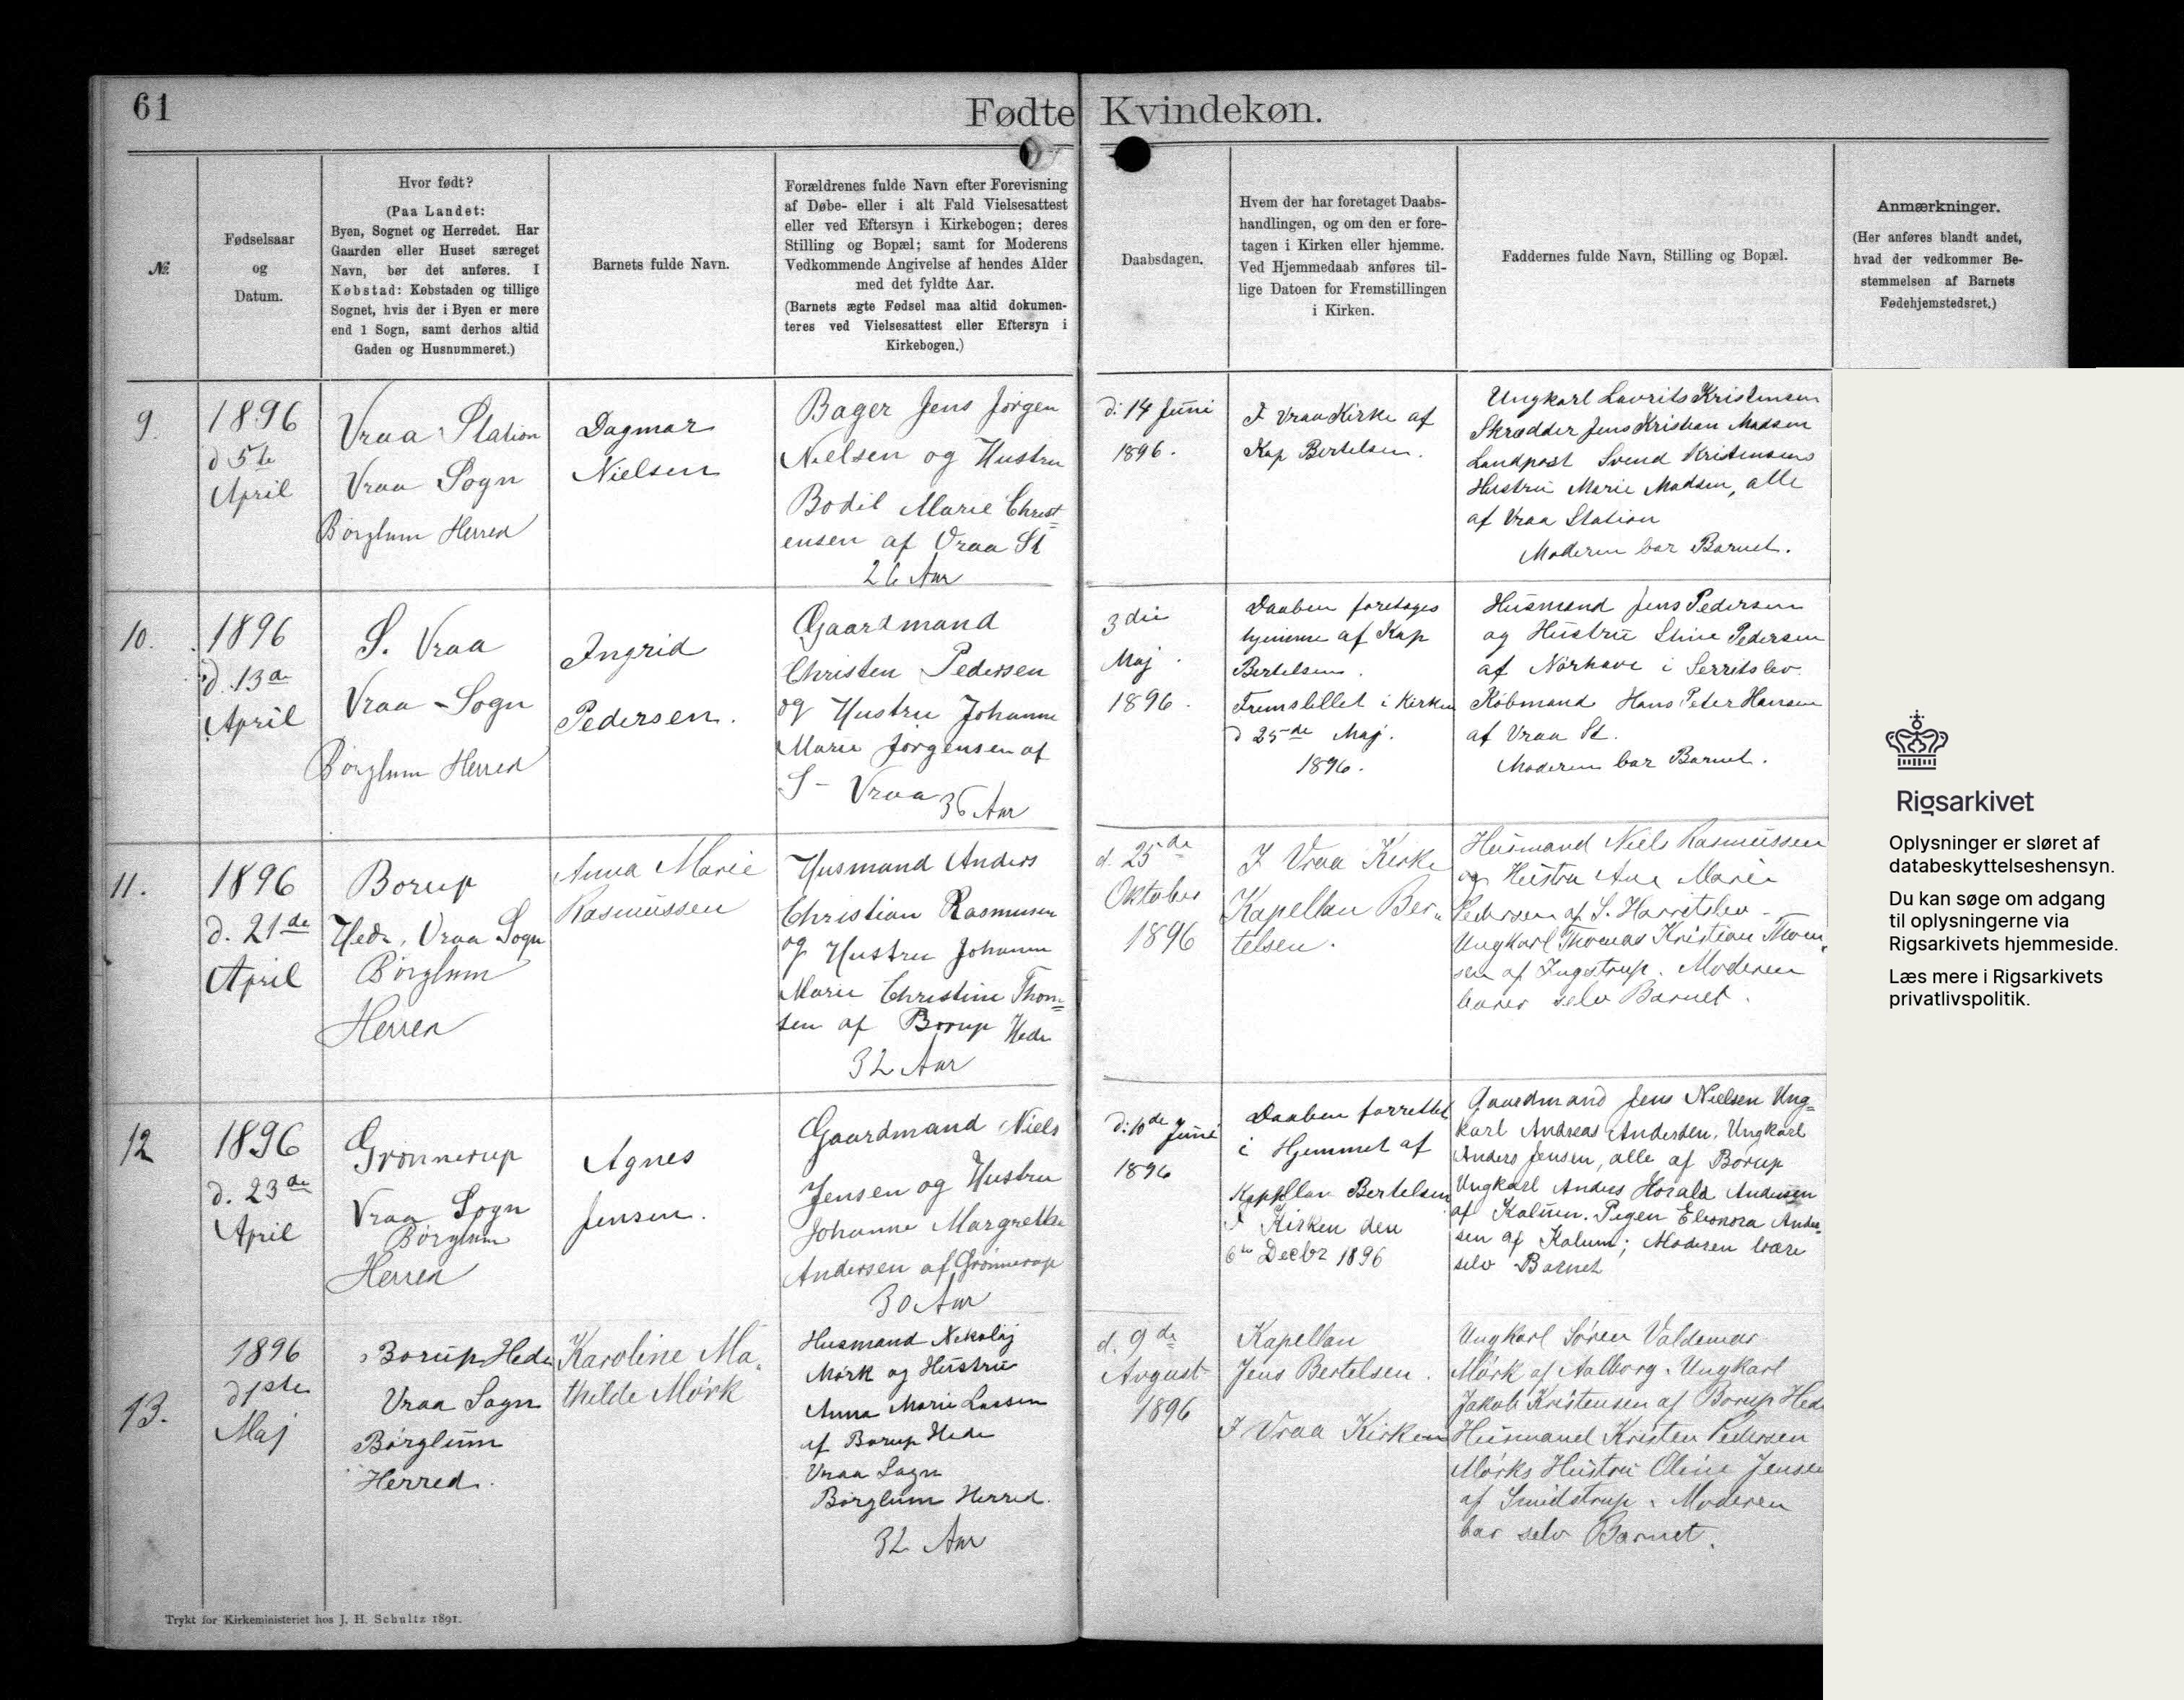 61
Fødte Kvindekøn.
№
Fødselsaar
og
Datum.
Hvor født?
(Paa Landet:
Byen, Sognet og Herredet. Har
Gaarden eller Huset særeget
Navn, bør det anføres. I
Købstad: Købstaden og tillige
Sognet, hvis der i Byen er mere
end 1 Sogn, samt derhos altid
Gaden og Husnummeret.)
Barnets fulde Navn.
Forældrenes fulde Navn efter Forevisning
af Døbe- eller i alt Fald Vielsesattest
eller ved Eftersyn i Kirkebogen; deres
Stilling og Bopæl; samt for Moderens
Vedkommende Angivelse af hendes Alder
med det fyldte Aar.
(Barnets ægte Fødsel maa altid dokumen-
teres ved Vielsesattest eller Eftersyn i
Kirkebogen.)
Daabsdagen.
Hvem der har foretaget Daabs-
handlingen, og om den er fore-
tagen i Kirken eller hjemme.
Ved Hjemmedaab anføres til-
lige Datoen for Fremstillingen
i Kirken.
Faddernes fulde Navn, Stilling og Bopæl.
Anmærkninger.
(Her anføres blandt andet,
hvad der vedkommer Be-
stemmelsen af Barnets
Fødehjemstedsret.)
9.
1896
d 5te
April
Vraa Station
Vraa Sogn
Børglum Herred
Dagmar
Nielsen
Bager Jens Jørgen
Nielsen og Hustru
Bodil Marie Christ=
ensen af Vraa St
26 Aar
d: 14 Juni
1896.
I Vraa Kirke af
Kap Bertelsen.
Ungkarl Lavrits Kristensen
Skrædder Jens Kristian Madsen
Landpost Svend Kristensens
Hustru Marie Madsen, alle
af Vraa Station
Moderen bar Barnet.
10.
1896
d. 13de
April
S. Vraa
Vraa - Sogn
Børglum Herred
Ingrid
Pedersen.
Gaardmand
Christen Pedersen
og Hustru Johanne
Marie Jørgensen af
S - Vraa 36 Aar
3die
Maj.
1896.
Daaben foretoges
hjemme af Kap
Bertelsen.
Fremstillet i Kirken
d 25de Maj.
1896.
Husmand Jens Pedersen
og Hustru Stine Pedersen
af Nørhave i Serritslev.
Købmand Hans Peter Hansen
af Vraa St.
Moderen bar Barnet.
11.
1896
d. 21de
April
Borup
Hede, Vraa Sogn
Børglum
Herred
Anna Marie
Rasmussen
Husmand Anders
Christian Rasmussen
og Hustru Johanne
Marie Christine Thom=
sen af Borup Hede
32 Aar
d. 25de
Oktober
1896
I Vraa Kirke
Kapellan Ber-
telsen.
Husmand Niels Rasmussen
og Hustru Ane Marie
Pedersen af S. Harritslev.
Ungkarl Thomas Kristian Thom-
sen af Ingstrup. Moderen
barer selv Barnet.
12
1896
d. 23de
April
Grønnerup
Vraa Sogn
Børglum
Herred
Agnes
Jensen.
Gaardmand Niels
Jensen og Hustru
Johanne Margrethe
Andersen af Grønnerup
30 Aar
d: 10de Juni
1896
Daaben forrettet
i Hjemmet af
Kapellan Bertelsen
I Kirken den
6te Decbr 1896
Gaardmand Jens Nielsen Ung=
karl Andreas Andersen, Ungkarl
Anders Jensen, alle af Borup
Ungkarl Anders Harald Andersen
af Kalum. Pigen Eleonora Ander-
sen af Kalum; Moderen bære
selv Barnet
13.
1896
d 1ste
Maj
Borup Hede
Vraa Sogn
Børglum
Herred.
Karoline Ma-
thilde Mørk
Husmand Nikolaj
Mørk og Hustru
Anna Marie Larsen
af Borup Hede
Vraa Sogn
Børglum Herred.
32 Aar
d. 9de
Avgust
1896
Kapellan
Jens Bertelsen.
I Vraa Kirken
Ungkarl Søren Valdemar
Mørk af Aalborg. Ungkarl
Jakob Kristensen af Borup Hede
Husmand Kristen Pedersen
Mørks Hustru Oline Jensen
af Smidstrup. Moderen
bar selv Barnet.
Trykt for Kirkeministeriet hos J. H. Schultz 1891.
Rigsarkivet
Oplysninger er sløret af
databeskyttelseshensyn.
Du kan søge om adgang
til oplysningerne via
Rigsarkivets hjemmeside.
Læs mere i Rigsarkivets
privatlivspolitik.